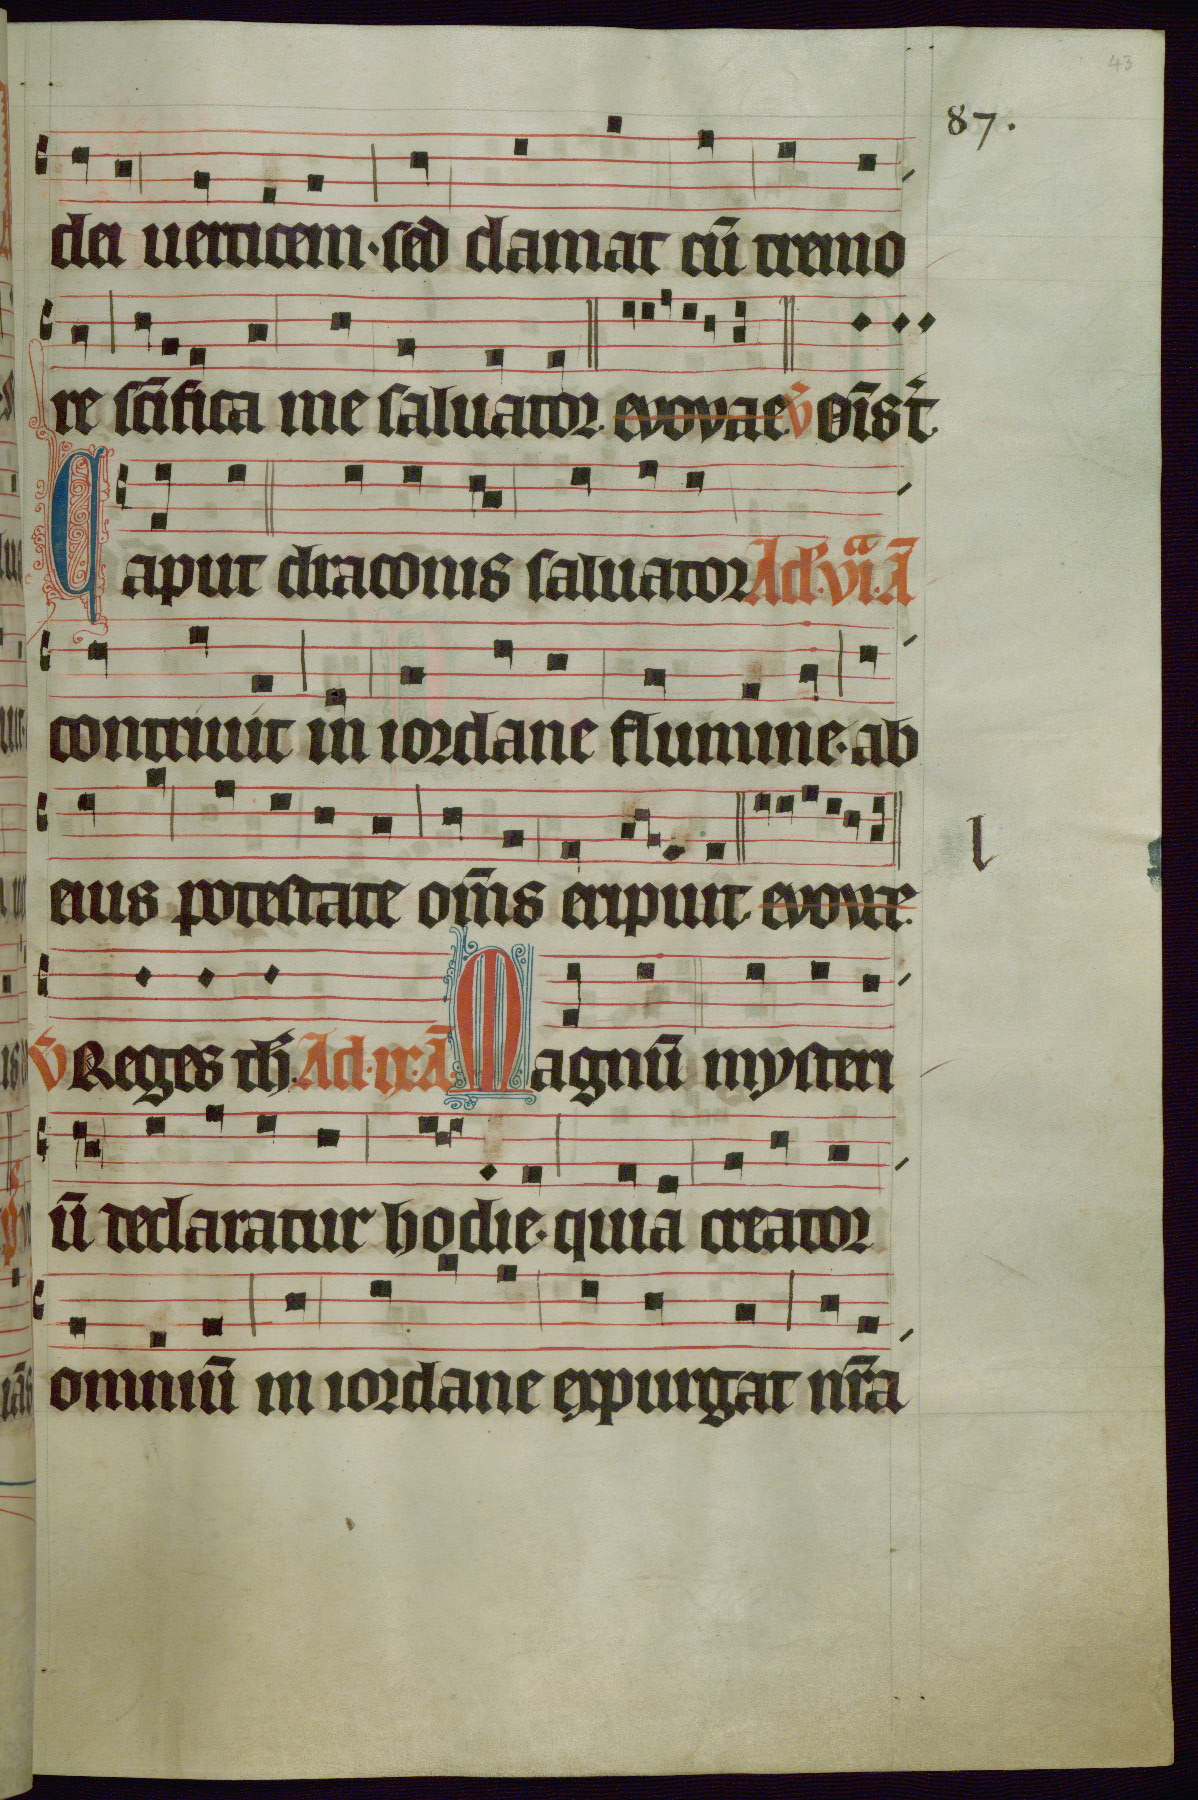 43
87.
dei uerticem· sed clamat cū tremo
re sc̄ifica me saluator. evovae. V̄ Oīs t̄.
Caput draconis saluator Ad·vi·ā A
contriuit in iordane flumine· ab
eius potestate om̄s eripuit evovae.
l
V̄ Reges th̄. Ad·ix·ā Magnū mysteri
ū declaratur hodie· quia creator
omniū in iordane expurgat nr̄a